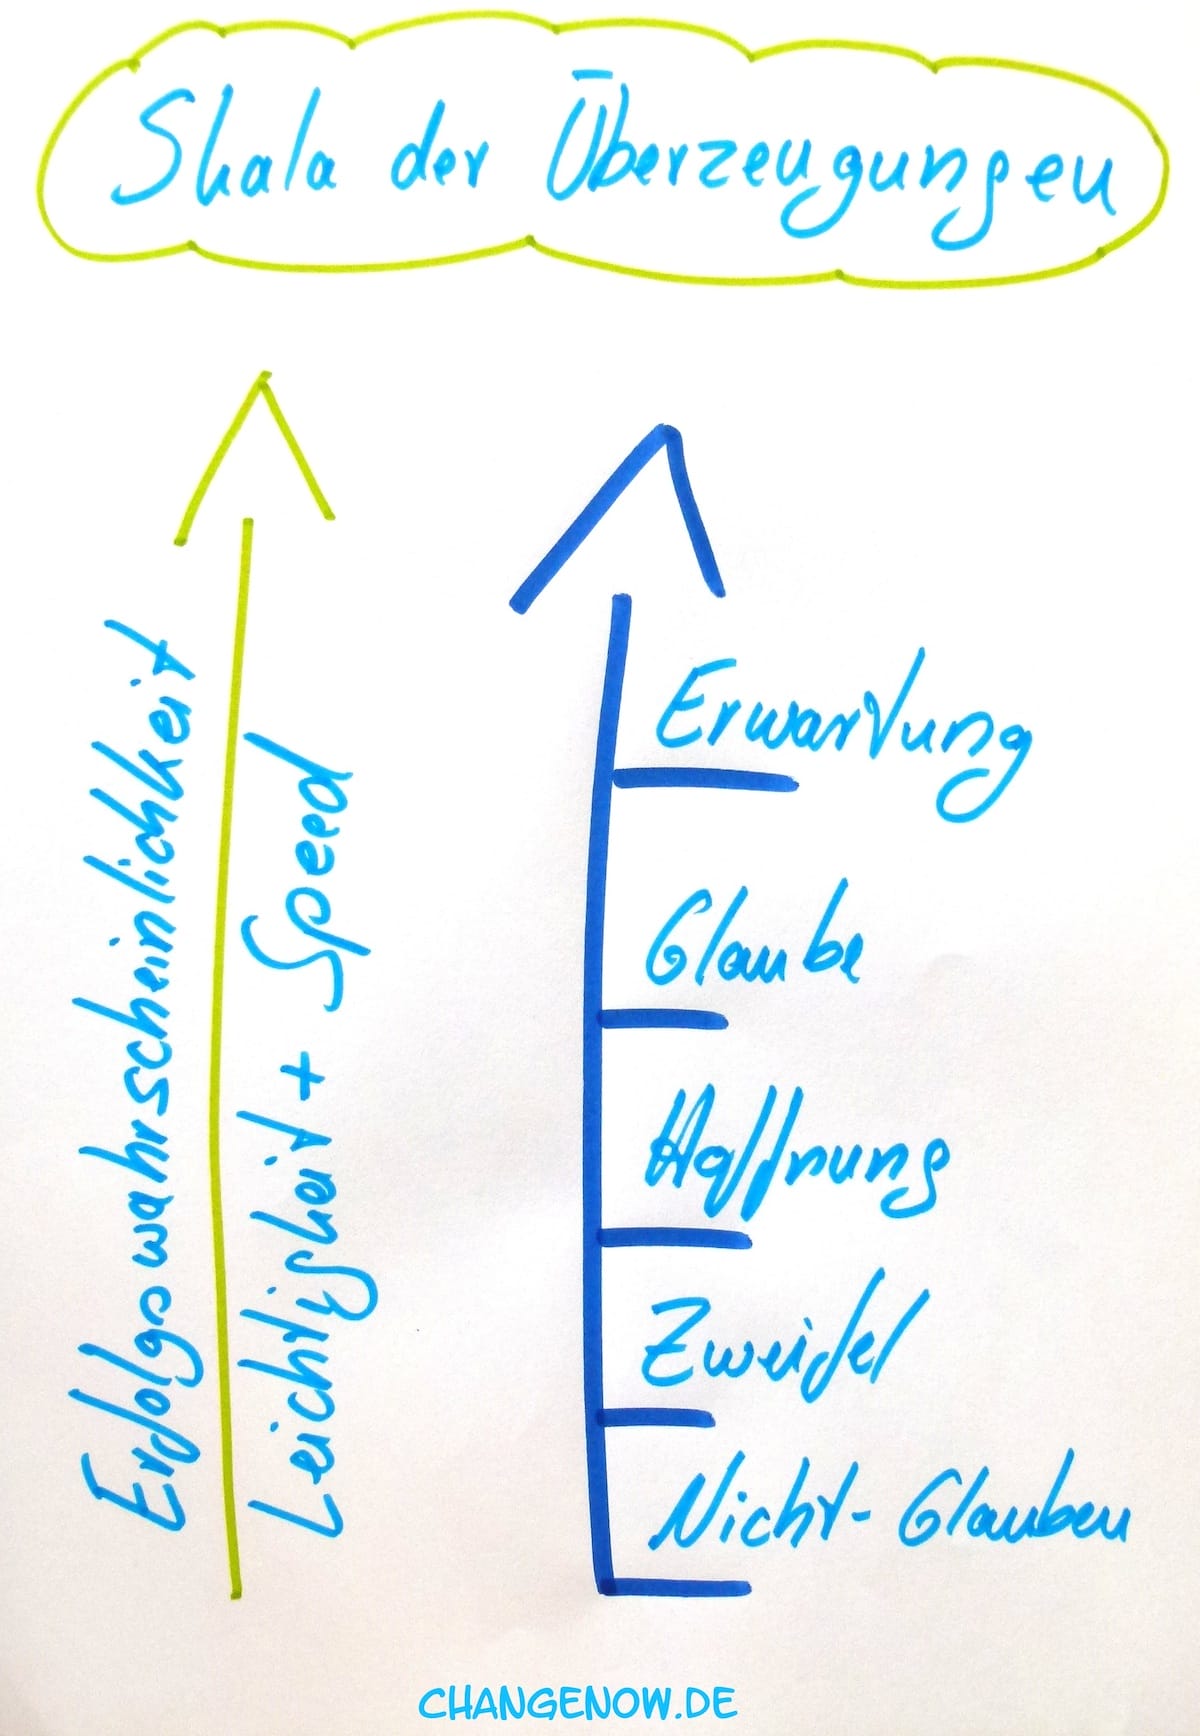 Skala der Überzeugungen
Erfolgswahrscheinlichkeit
Leichtigkeit + Speed
Erwartung
Glaube
Hoffnung
Zweifel
Nicht-Glauben
CHANGENOW.DE